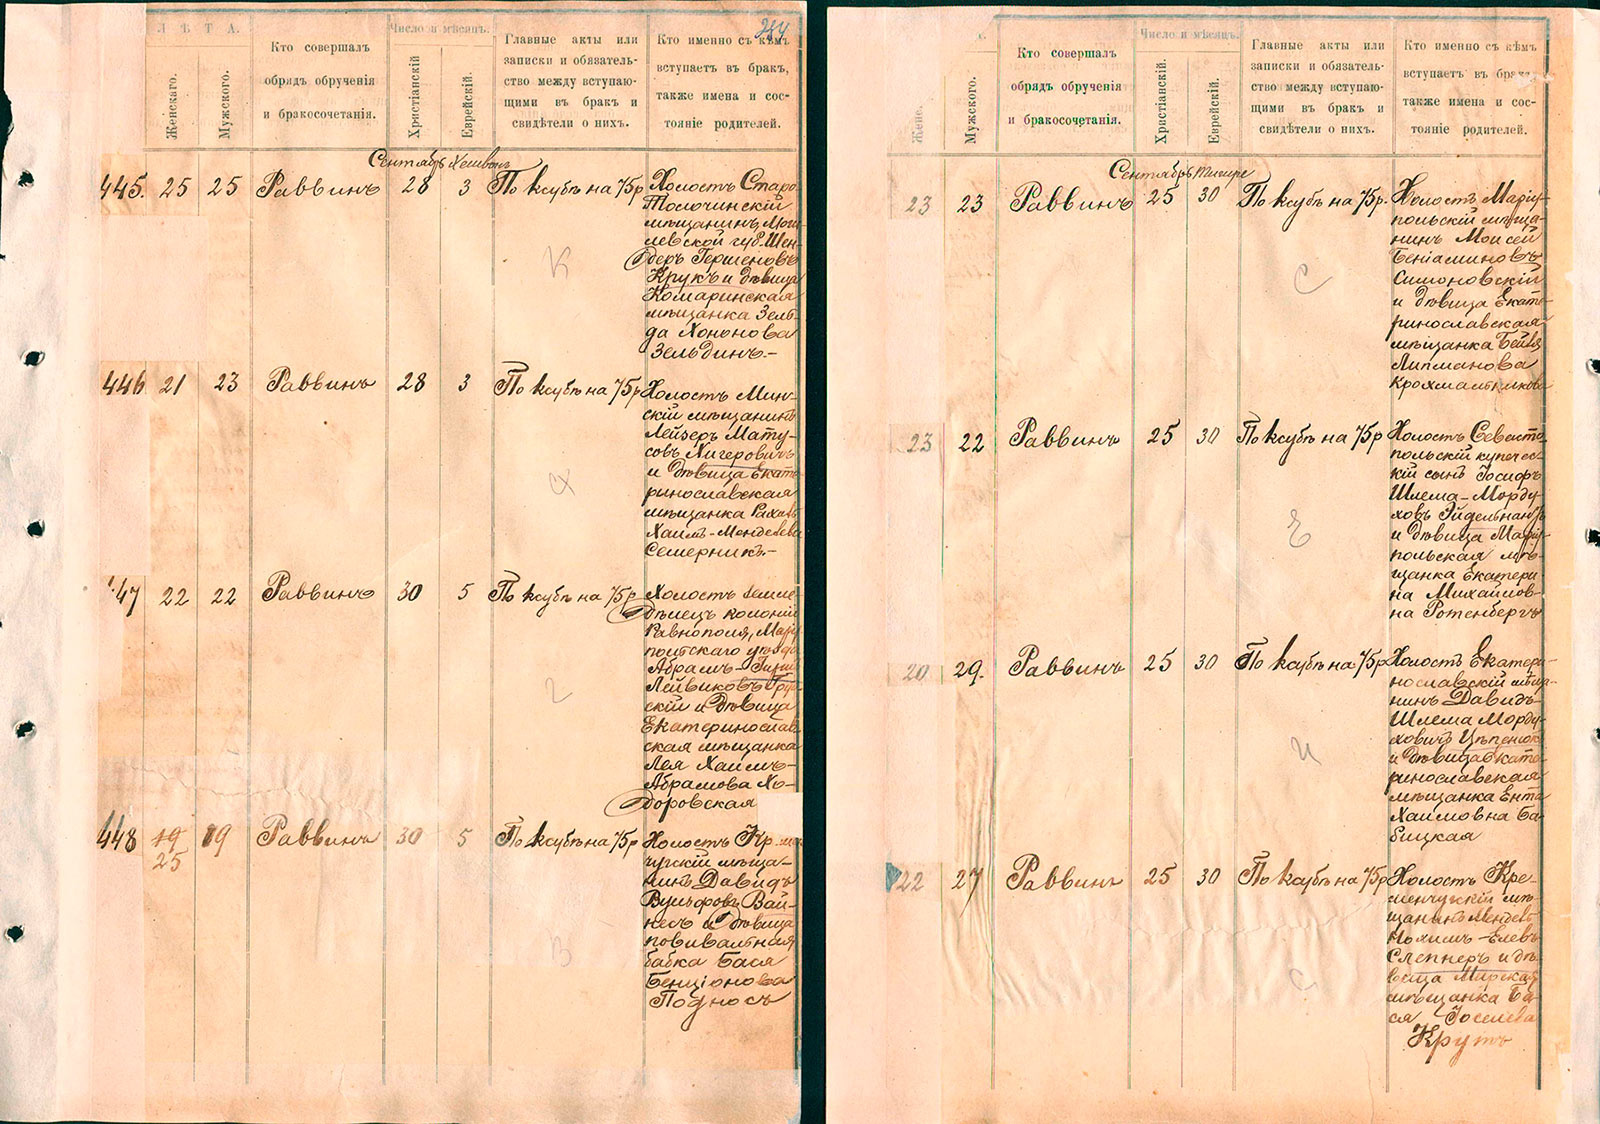 244
ЛѢТА.
Женскаго.
Мужского.
Кто совершалъ
обрядъ обрученія
и бракосочетанія.
Число и мѣсяцъ.
Христіанскій
Еврейскій.
Главные акты или
записки и обязатель-
ство между вступаю-
щими въ бракъ и
свидѣтели о нихъ.
Кто именно съ кѣмъ
вступаетъ въ бракъ,
также имена и сос-
тояніе родителей.
Сентябрь Хешвонъ
445. 25 25 Раввинъ 28 3 По ксубѣ на 75 р
Холостъ Старо-
Толочинскій
мѣщанинъ Моги-
левской губ. Шен-
деръ Гершеновъ
Крукъ и дѣвица
Комаринская
мѣщанка Зель-
да Хононова
Зельдинъ.-
К
446 21 23 Раввинъ 28 3 По ксубѣ на 75 р
Холостъ Мин-
скій мѣщанинъ
Лейзеръ Мату-
совъ Нигеровичъ
и дѣвица Екате-
ринославская
мѣщанка Рахиль
Хаимъ-Менделева
Семерникъ.-
47 22 22 Раввинъ 30 5 По ксубѣ на 75 р
Холостъ земле-
дѣлецъ колоніи
Равнополя, Маріу-
польскаго уѣзда
Абрамъ-
Лейвиковъ
скій и дѣвица
Екатеринослав-
ская мѣщанка
Лея Хаимъ-
Абрамова Хо-
доровская
2
448 19 19 Раввинъ 30 5 По ксубѣ на 75 р
25
Холостъ
чугскій мѣща-
нинъ Давидъ
Вульфовъ Вай-
несъ и дѣвица
повивальная
бабка Бася
Бенціонова
Подносъ
В
Жене
Мужского.
Кто совершалъ
обрядъ обрученія
и бракосочетанія.
Число и мѣсяцъ.
Христіанскій.
Еврейскій.
Главные акты или
записки и обязатель-
ство между вступаю-
щими въ бракъ и
свидѣтели о нихъ.
Кто именно съ кѣмъ
вступаетъ въ бракъ
также имена и сос-
тояніе родителей.
Сентябрь Тишре
23 23 Раввинъ 25 30 По ксубѣ на 75 р.
Холостъ Маріу-
польскій мѣща-
нинъ Моисей
Беніаминовъ
Симоновскій
и дѣвица Екате-
ринославская
мѣщанка Бейля
Липманова
Крохмальникова
С
23 22 Раввинъ 25 30 По ксубѣ на 75 р
Холостъ Севасто-
польскій купечес-
кій сынъ Іосифъ
Шлема-Морду-
ховъ Эйдельнантъ
и дѣвица Маріу-
польская мѣ-
щанка Екатери-
на Михайлов-
на Ротенбергъ
Е
20 29. Раввинъ 25 30 По ксубѣ на 75 р
Холостъ Екатери-
нославскій мѣща-
нинъ Давидъ-
Шлема Морду-
ховичъ Цѣпенюк
и дѣвица Екате-
ринославская
мѣщанка Ента
Хаимовна Ба-
бицкая
и
22 27 Раввинъ 25 30 По ксубѣ на 75 р
Холостъ Кре-
менчугскій мѣ-
щанинъ Мендель
Нохимъ-Елевъ
Слепнеръ и дѣ-
вица Мирская
мѣщанка Ба-
ся Іоселева
Крутъ
С